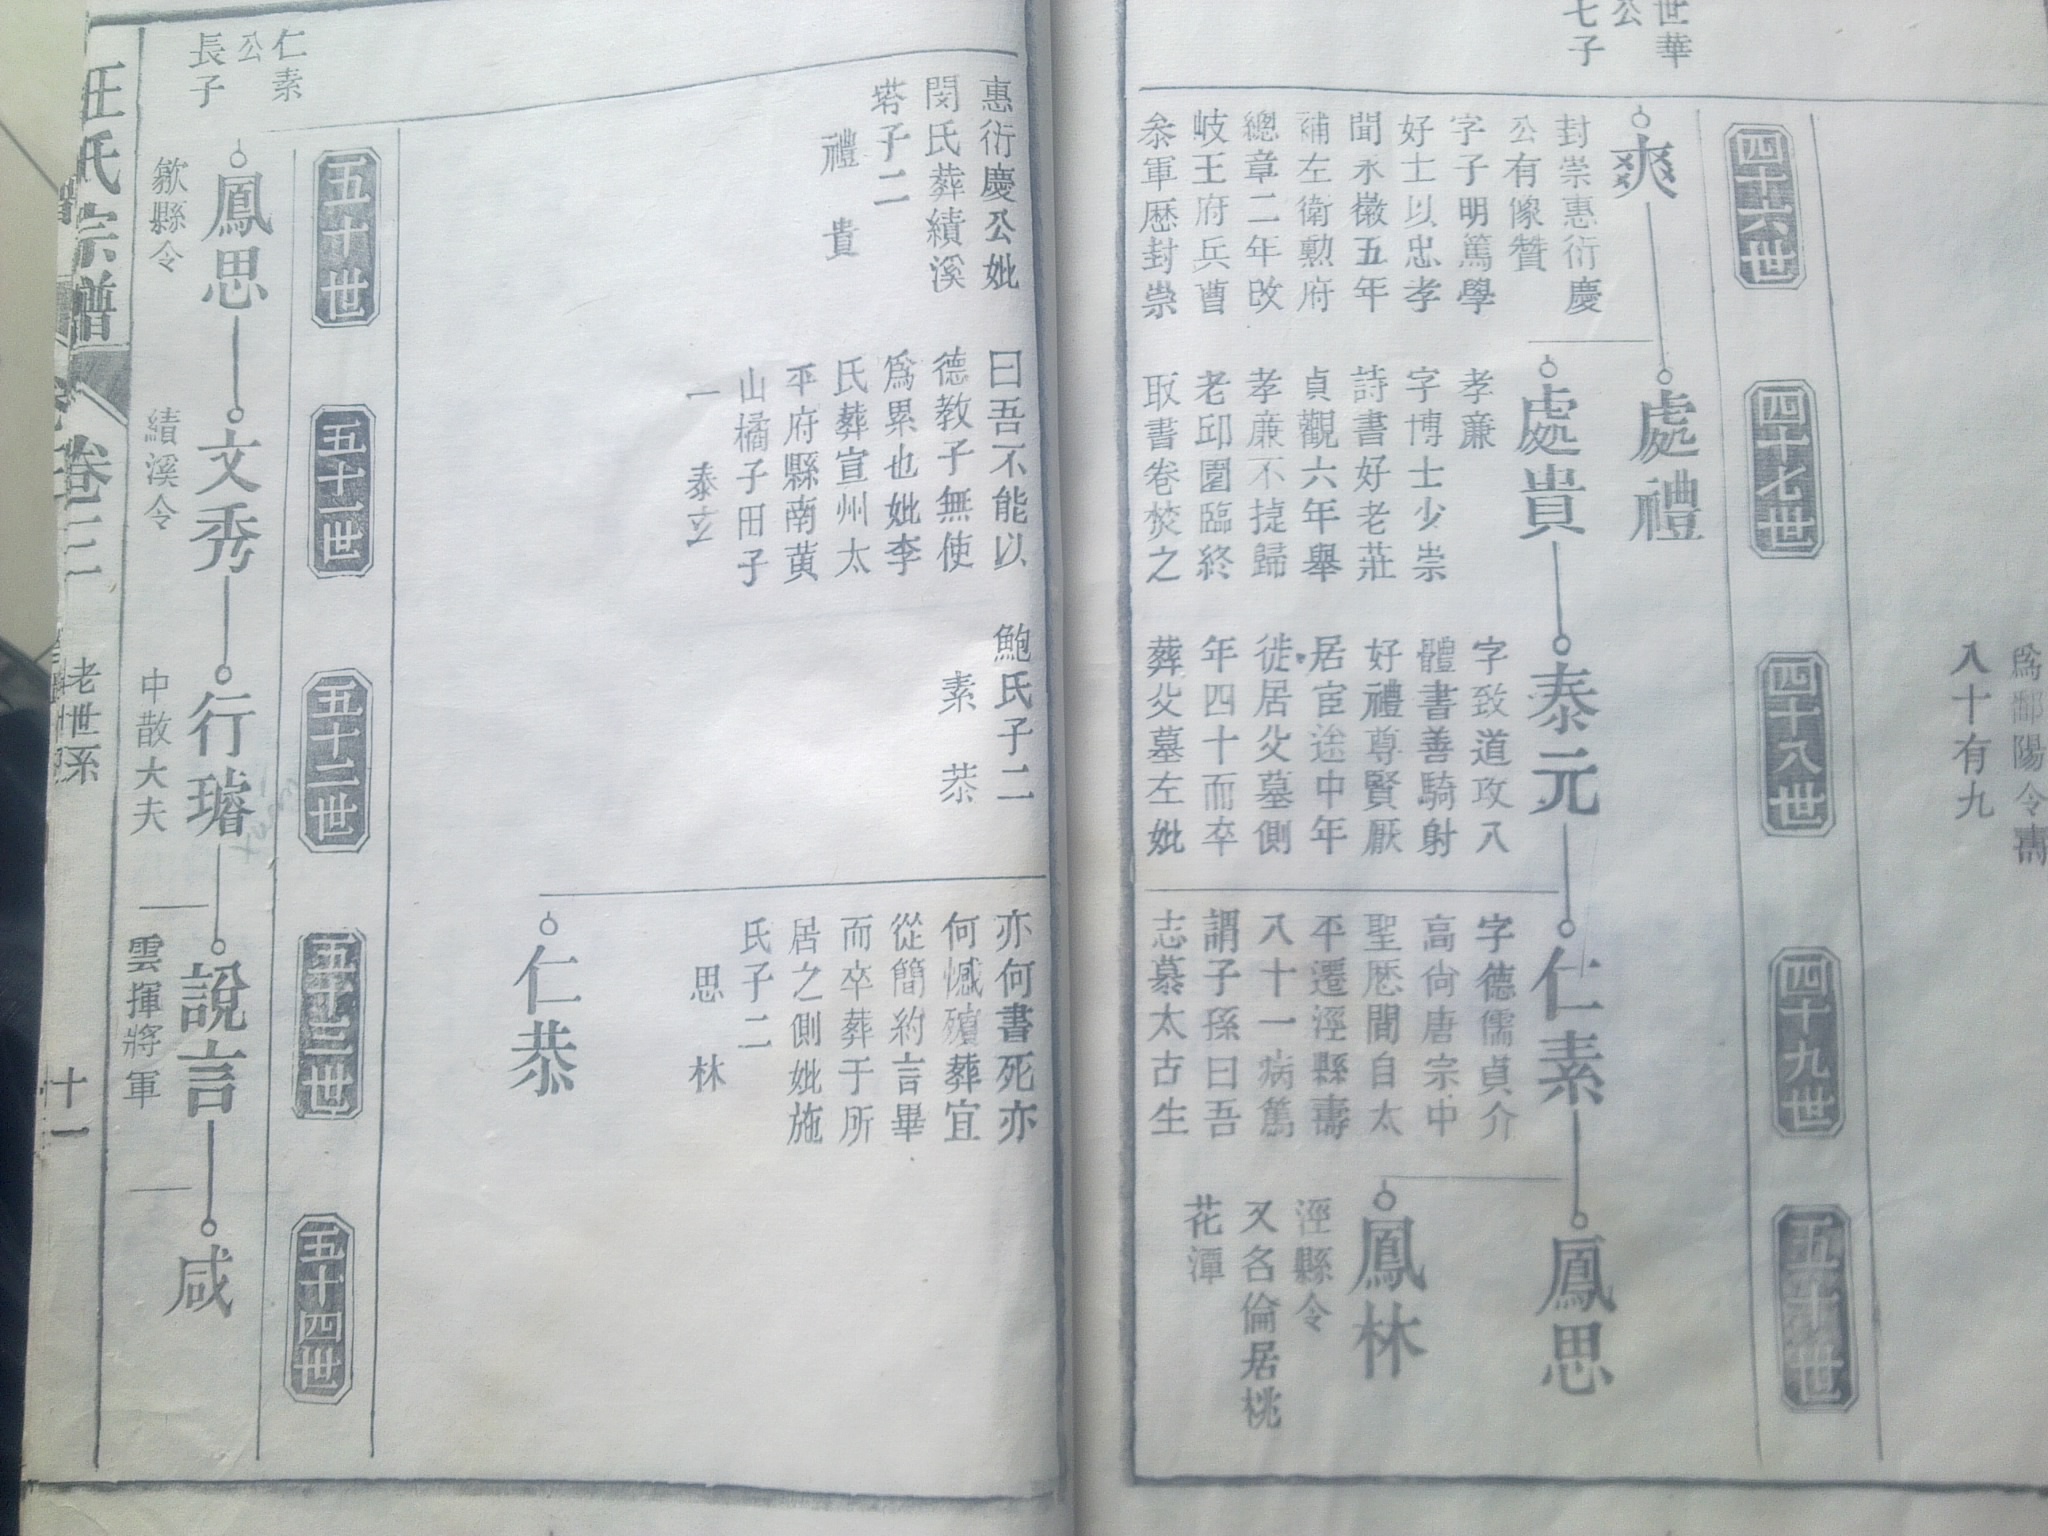 為鄱陽令壽
八十有九
四十六世
四十七世
四十八世
四十九世
五十世
世華
公
七子
爽
封崇惠衍慶
公有像贊
字子明篤學
好士以忠孝
聞永徽五年
補左衛勲府
總章二年改
岐王府兵曹
叅軍歷封崇
惠衍慶公妣
閔氏葬績溪
塔子二
禮貴
處禮
處貴
孝廉
字博士少崇
詩書好老莊
貞觀六年舉
孝廉不㨗歸
老邱園臨終
取書卷焚之
曰吾不能以
德教子無使
為累也妣李
氏葬宣州太
平府縣南黄
山橘子田子
一
泰玄
泰元
字致道攻八
體書善騎射
好禮尊賢厭
居宦途中年
徙居父墓側
年四十而卒
葬父墓左妣
鮑氏子二
素恭
仁素
字德儒貞介
高尙唐宗中
聖歷間自太
平遷涇縣壽
八十一病篤
謂子孫曰吾
志慕太古生
亦何書死亦
何憾殯葬宜
從簡約言畢
而卒葬于所
居之側妣施
氏子二
思林
仁恭
鳳思
鳳林
涇縣令
又名倫居桃
花潭
五十世
五十一世
五十二世
五十三世
五十四世
仁素
公
長子
鳳思
歙縣令
文秀
績溪令
行璿
中散大夫
說言
雲揮將軍
咸
汪氏宗譜
卷三
老世系
十一